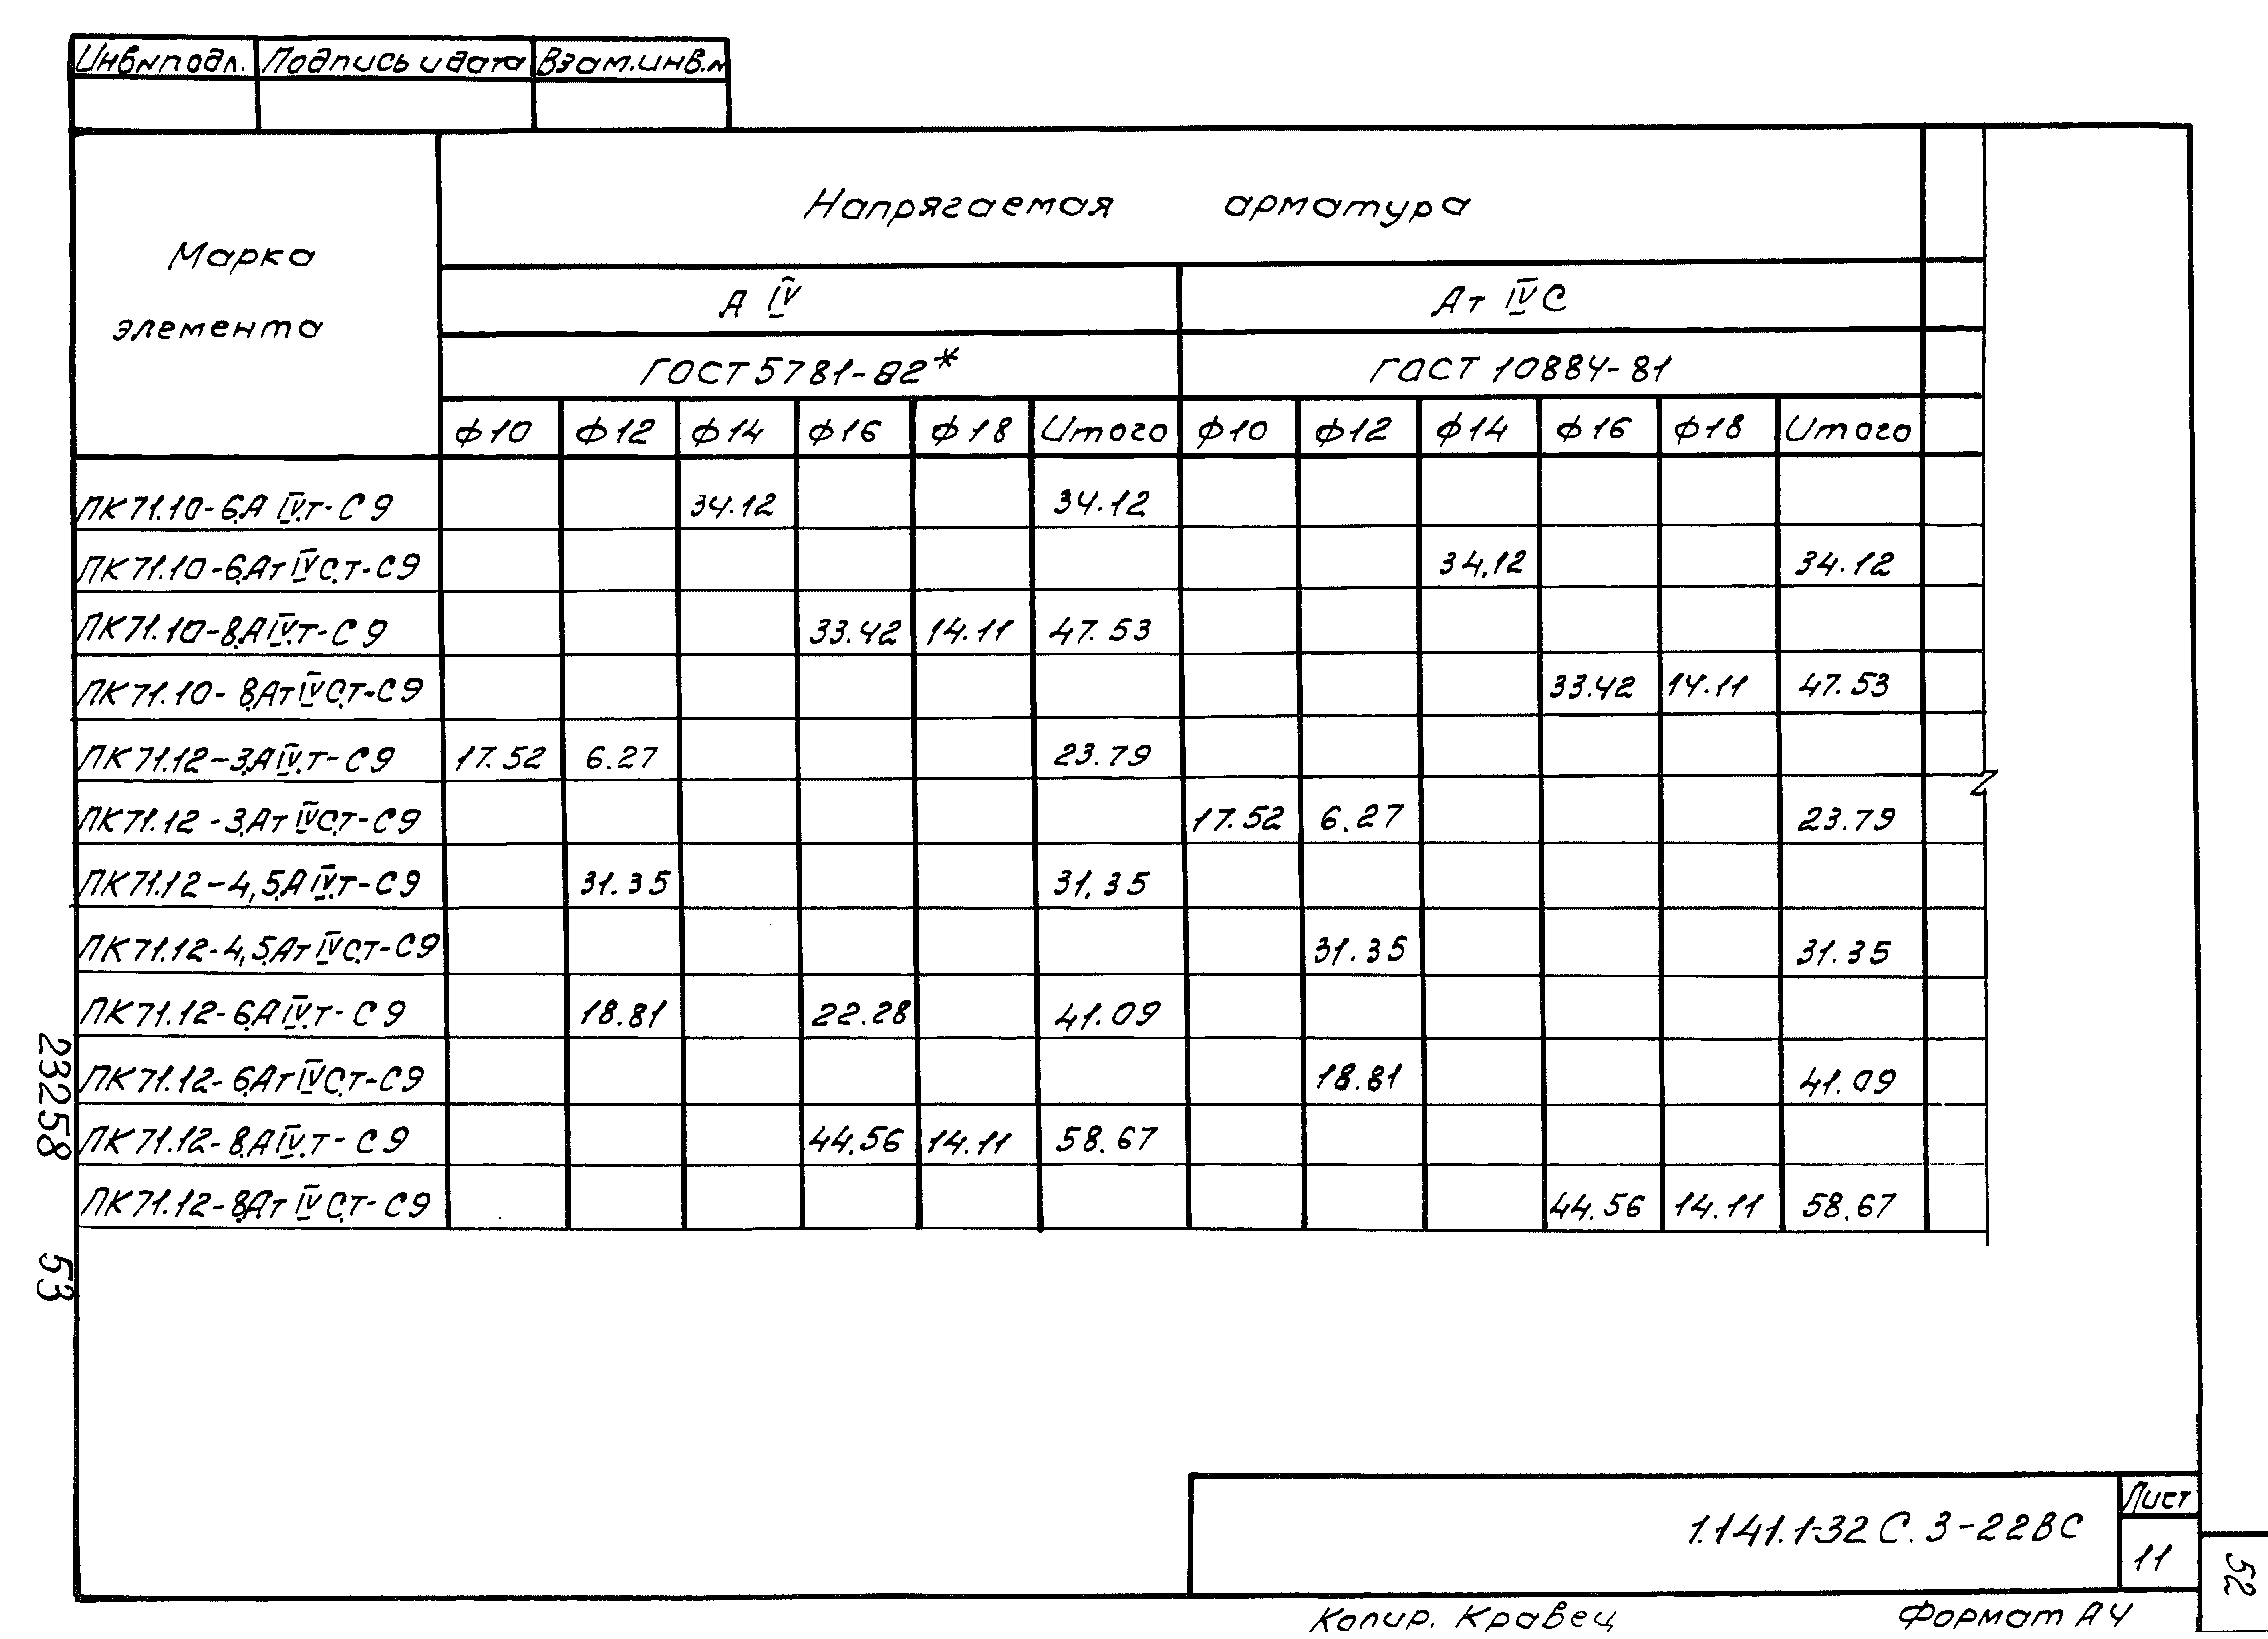 Инв.№подл. Подпись и дата Взам.инв.№
Марка элемента
Напрягаемая арматура
А IV Ат IV С
ГОСТ 5781-82* ГОСТ 10884-81
ф10 ф12 ф14 ф16 ф18 Итого ф10 ф12 ф14 ф16 ф18 Итого
ПК71.10-6.А IV.т-С9 34.12 34.12
ПК71.10-6.Ат IV С.т-С9 34,12 34.12
ПК71.10-8.А IV.т-С9 33.42 14.11 47.53
ПК71.10-8.Ат IV С.т-С9 33.42 14.11 47.53
ПК71.12-3.А IV.т-С9 17.52 6.27 23.79
ПК71.12-3.Ат IV С.т-С9 17.52 6.27 23.79
ПК71.12-4,5.А IV.т-С9 31.35 31.35
ПК71.12-4,5.Ат IV С.т-С9 31.35 31.35
ПК71.12-6.А IV.т-С9 18.81 22.28 41.09
ПК71.12-6.Ат IV С.т-С9 18.81 41.09
ПК71.12-8.А IV.т-С9 44.56 14.11 58.67
ПК71.12-8.Ат IV С.т-С9 44.56 14.11 58.67
23258 53
1.141.1-32 С.3-22ВС
Лист
11
52
Копир. Кравец Формат А4